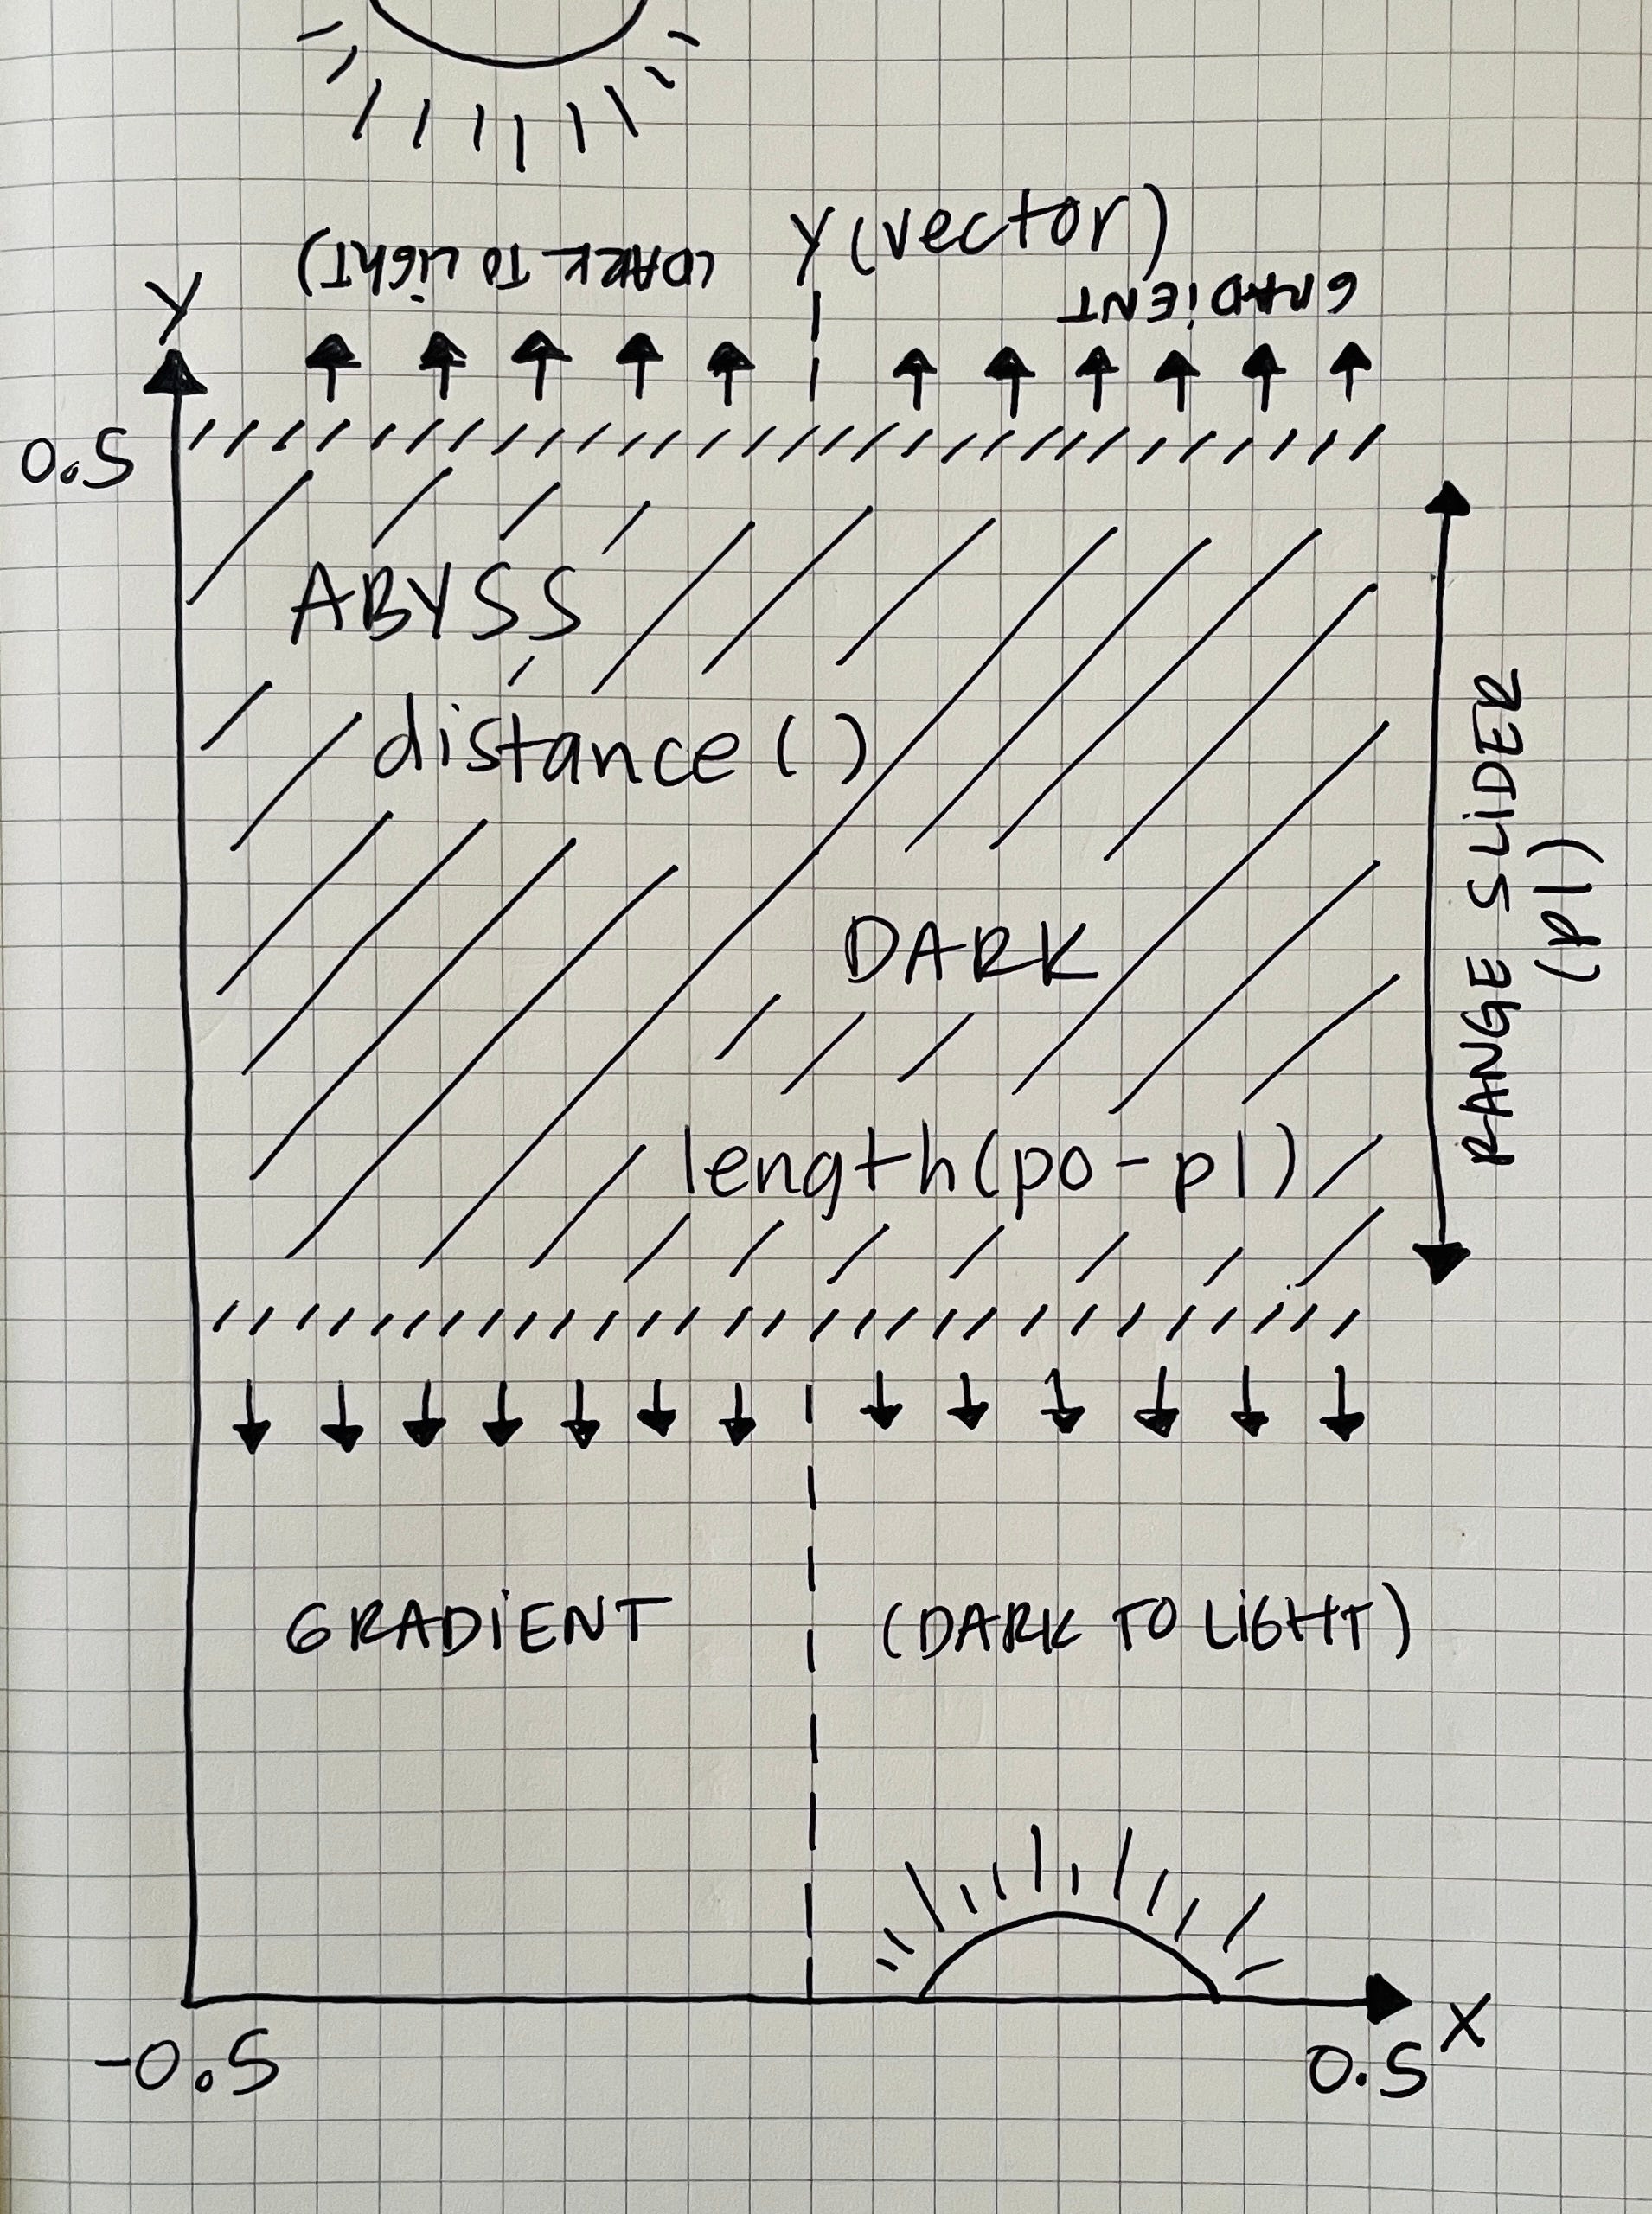 Y (vector)
(DARK TO LiGHT)
GRADiENT
Y
0.5
ABYSS
distance ( )
DARK
RANGE SLiDER
(p1)
length(po-p1)
GRADiENT
(DARK TO LiGHT)
-0.5
0.5
X